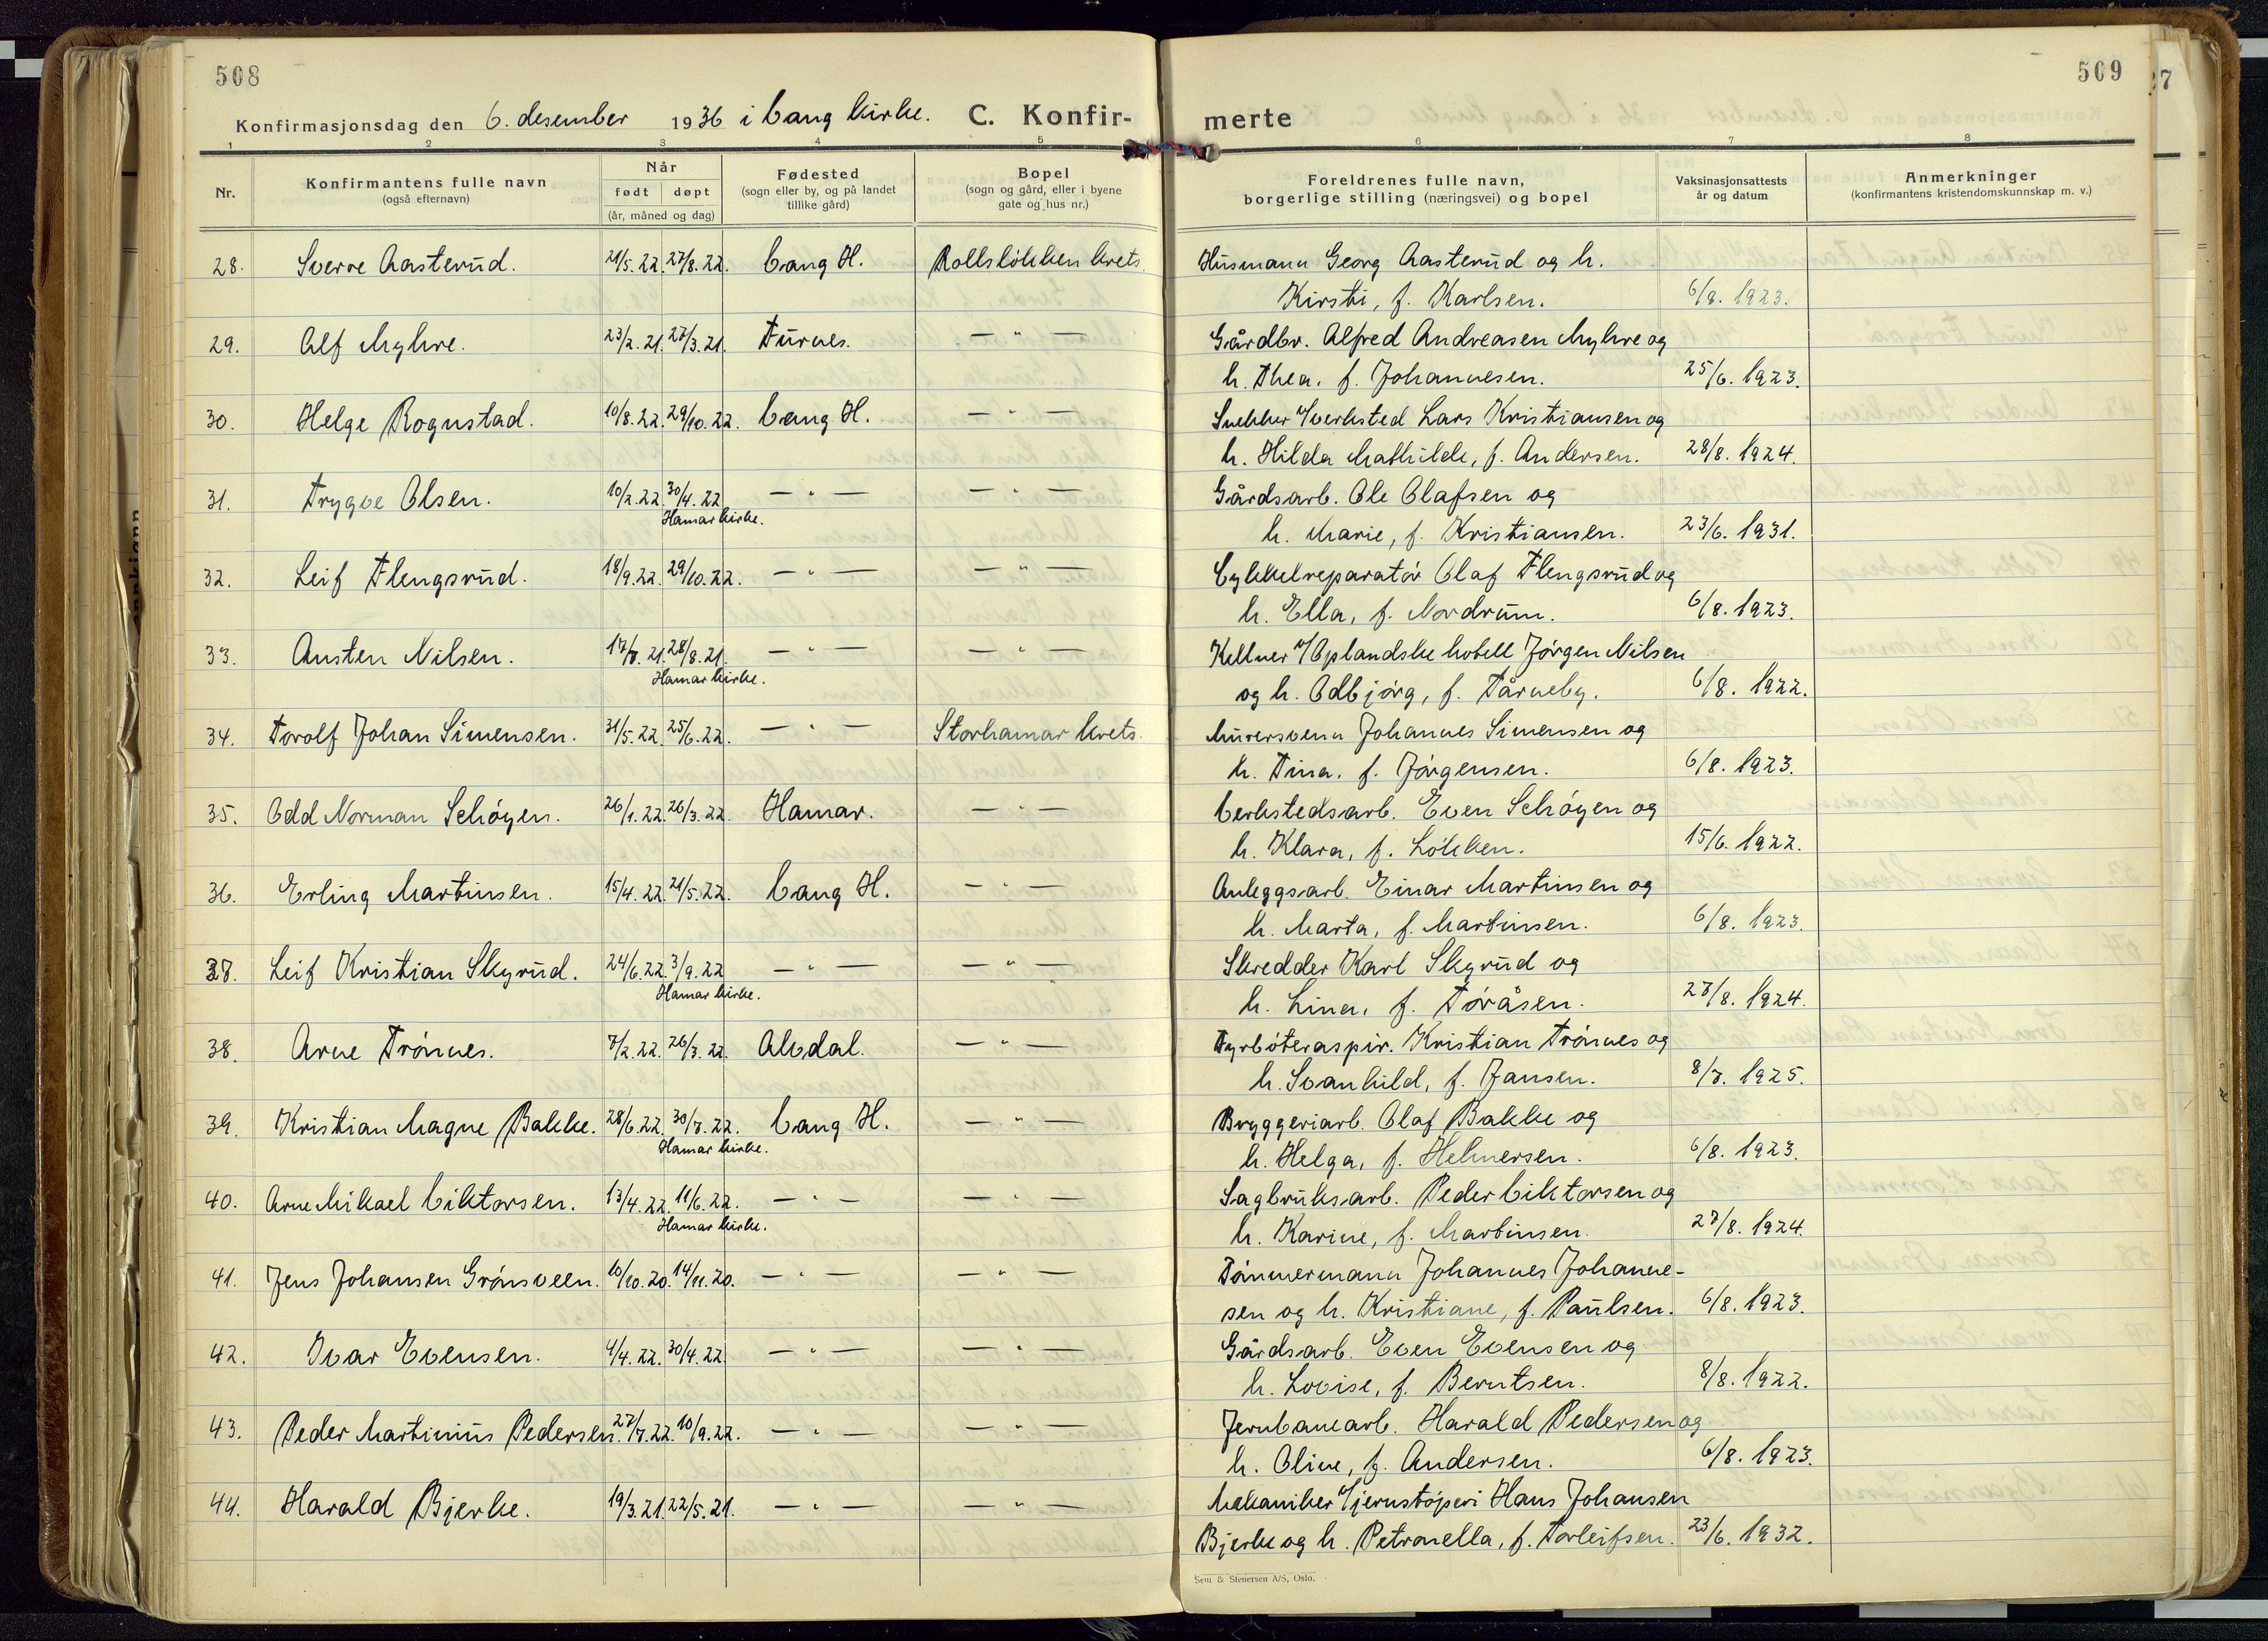 508
Konfirmasjonsdag den 6. desember 1936 i Vang kirke. C. Konfir-
1 2 3 4 5
Nr. Konfirmantens fulle navn (også efternavn) Når født døpt (år, måned og dag) Fødested (sogn eller by, og på landet tillike gård) Bopel (sogn og gård, eller i byene gate og hus nr.)
28. Sverre Aasterud. 21/5.22. 27/8.22. Vang H. Rollsløkken krets.
29. Alf Myhre. 23/2.21. 27/3.21. Furnes. — " —
30. Helge Rognstad. 10/8.22. 29/10.22. Vang H. — " —
31. Trygve Olsen. 10/2.22. 30/4.22 — " — — " —
Hamar kirke.
32. Leif Flengsrud. 18/9.22. 29/10.22. — " — — " —
33. Austen Nilsen. 17/7.21. 28/8.21. — " — — " —
Hamar kirke.
34. Torolf Johan Simensen. 31/5.22. 25/6.22. — " — Storhamar krets.
35. Odd Norman Schøyen. 26/1.22. 26/3.22. Hamar. — " —
36. Erling Martinsen. 15/4.22. 21/5.22. Vang H. — " —
37. Leif Kristian Skyrud. 24/6.22. 3/9.22 — " — — " —
Hamar kirke.
38. Arne Trønnes. 7/2.22. 26/3.22. Alvdal. — " —
39. Kristian Magne Bakke. 28/6.22. 30/7.22. Vang H. — " —
Hamar kirke.
40. Arne Mikael Viktorsen. 13/4.22. 11/6.22. — " — — " —
Hamar kirke.
41. Jens Johansen Grønsveen. 10/10.20. 14/11.20. — " — — " —
42. Ivar Evensen. 4/4.22. 30/4.22. — " — — " —
43. Peder Martinius Pedersen. 27/7.22. 10/9.22. — " — — " —
44. Harald Bjerke. 19/3.21. 22/5.21. — " — — " —
509
merte
6 7 8
Foreldrenes fulle navn, borgerlige stilling (næringsvei) og bopel Vaksinasjonsattests år og datum Anmerkninger (konfirmantens kristendomskunnskap m. v.)
Husmann Georg Aasterud og h.
Kirsti, f. Karlsen. 6/8. 1923.
Gårdbr. Alfred Andreasen Myhre og
h. Thea, f. Johannesen. 25/6. 1923.
Snekker v/verksted Lars Kristiansen og
h. Hilda Mathilde, f. Andersen. 28/8. 1924.
Gårdsarb. Ole Olafsen og
h. Marie, f. Kristiansen. 23/6. 1931.
Cykkelreparatør Olaf Flengsrud og
h. Ella, f. Nordrum. 6/8. 1923.
Kellner v/Oplandske hotell Jørgen Nilsen
og h. Odbjørg, f. Tårneby. 6/8. 1922.
Murersvenn Johannes Simensen og
h. Tina, f. Jørgensen. 6/8. 1923.
Verkstedsarb. Even Schøyen og
h. Klara, f. Løkken. 15/6. 1922.
Anleggsarb. Einar Martinsen og
h. Marta, f. Martinsen. 6/8. 1923.
Skredder Karl Skyrud og
h. Lina, f. Töråsen. 27/8. 1924.
Fyrbøteraspir. Kristian Trønnes og
h. Svanhild, f. Jansen. 8/7. 1925.
Bryggeriarb. Olaf Bakke og
h. Helga, f. Helmersen. 6/8. 1923.
Sagbruksarb. Peder Viktorsen og
h. Karine, f. Martinsen. 27/8. 1924.
Tömmermann Johannes Johanne-
sen og h. Kristiane, f. Paulsen. 6/8. 1923.
Gårdsarb. Even Evensen og
h. Lovise, f. Berntsen. 8/8. 1922.
Jernbanearb. Harald Pedersen og
h. Oline, f. Andersen. 6/8. 1923.
Mekaniker v/jernstøperi Hans Johansen
Bjerke og h. Petronella, f. Torleifsen. 23/6. 1932.
Sem & Stenersen A/S, Oslo.